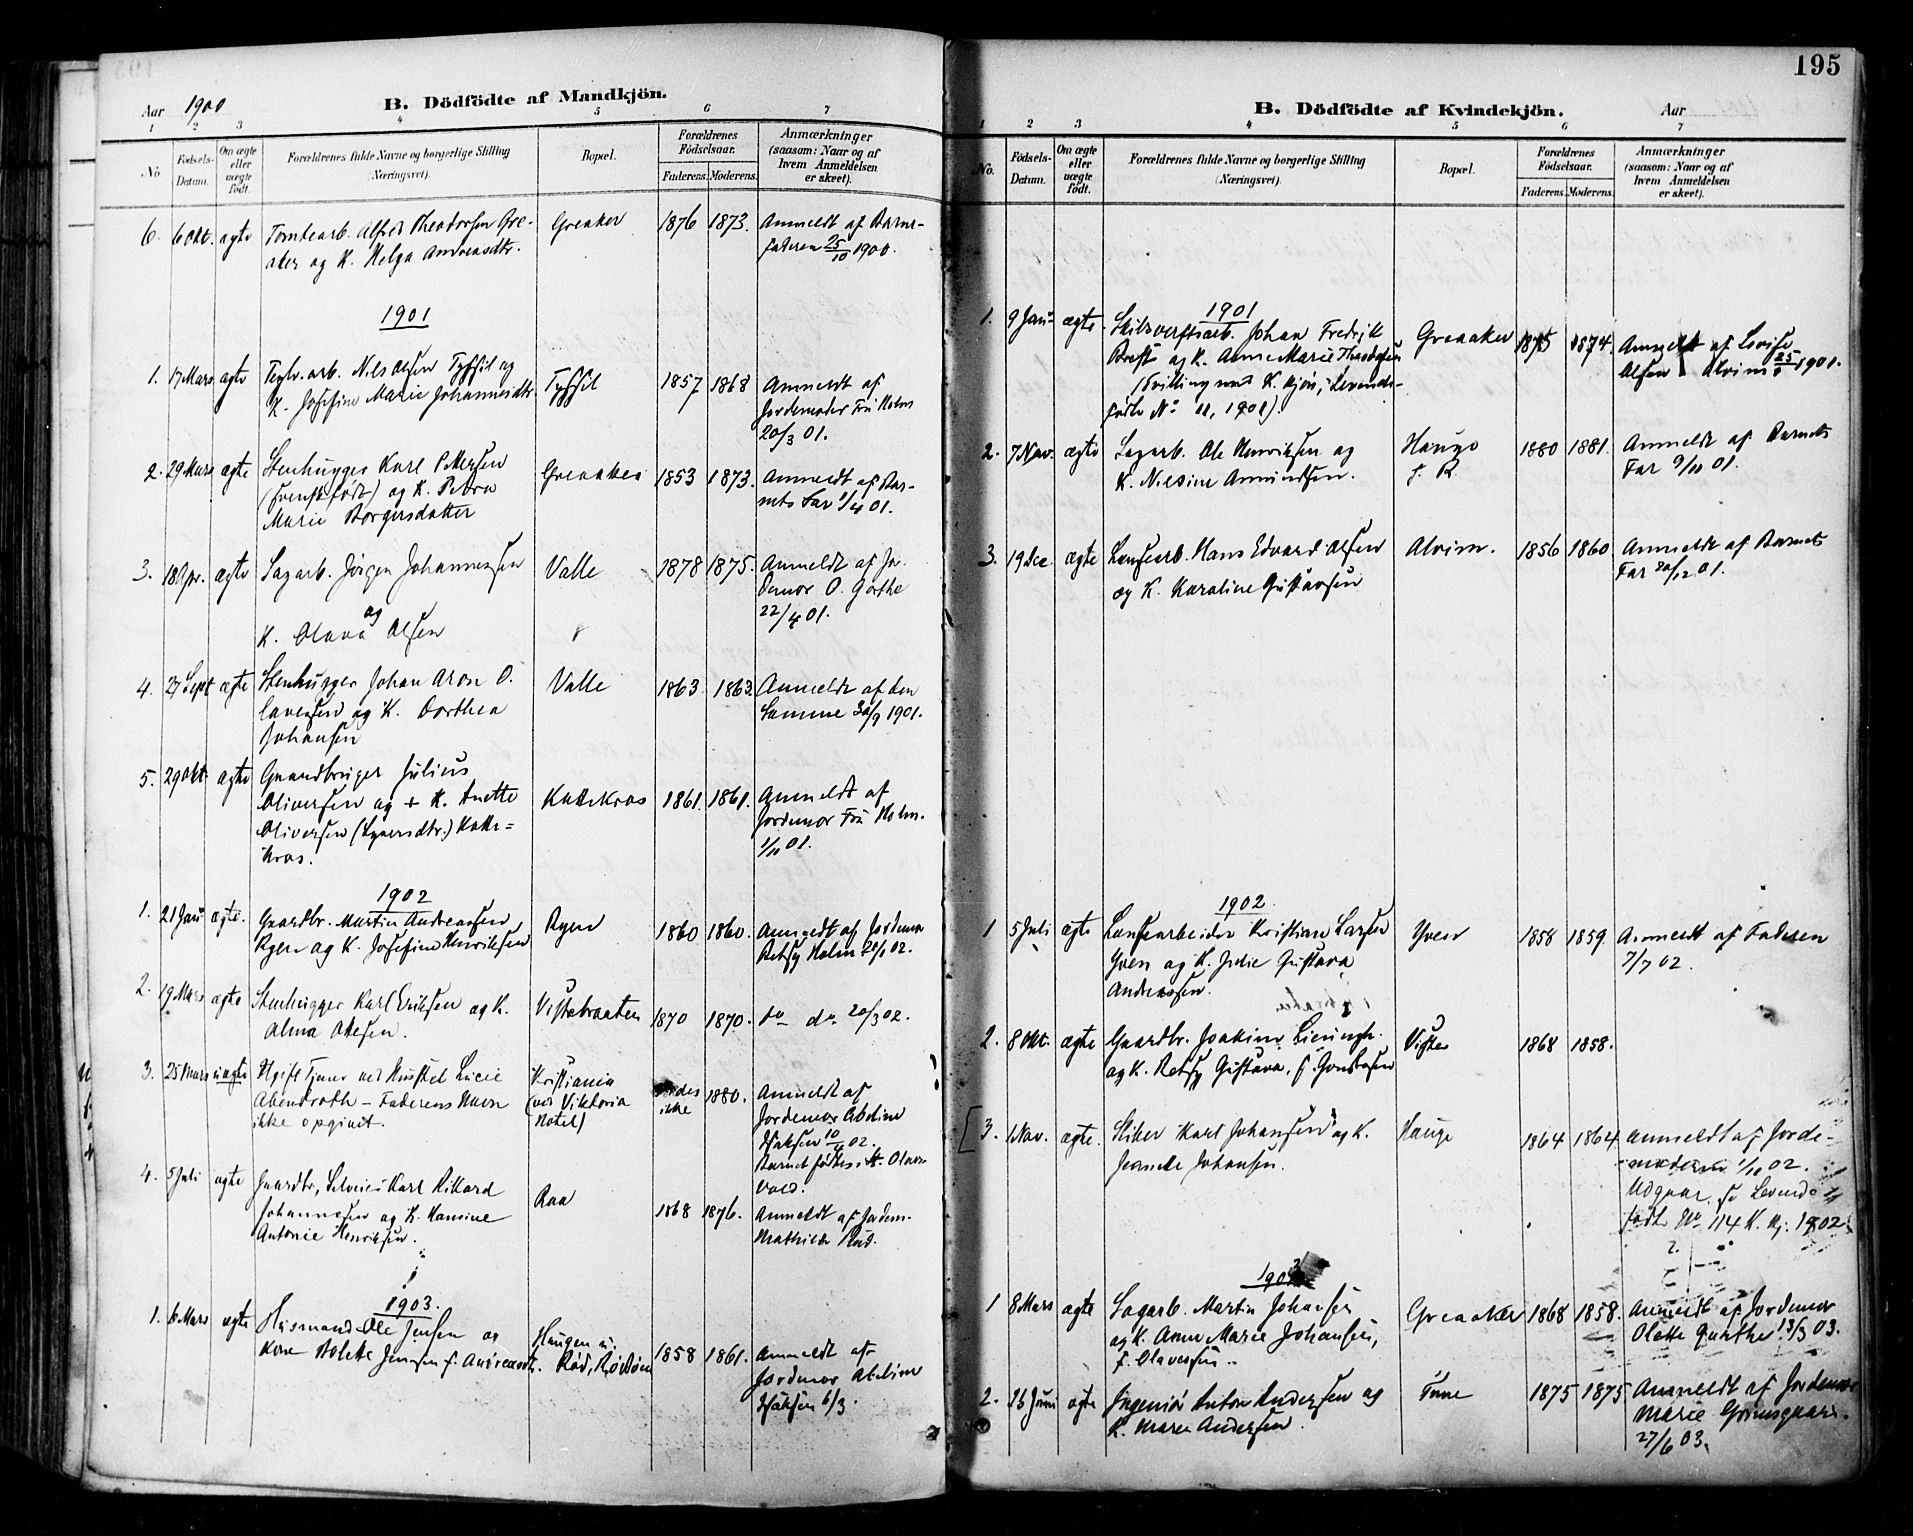 Aar 1900
B. Dödfödte af Mandkjön.
1 2 3 4 5 6 7
No.
Födsels-
Datum.
Om ægte
eller
uægte
födt.
Forældrenes fulde Navne og borgerlige Stilling
(Næringsvei).
Bopæl.
Forældrenes
Födselsaar.
Faderens. Moderens.
Anmærkninger
(saasom: Naar og af
hvem Anmeldelsen
er skeet).
6. 6 Okt. ægte Tomtearb. Alfred Theodorsen Gre-
aker og K. Helga Andreasdtr.
Greaker 1876 1873.
Anmeldt af Barne-
faderen 25/10 1900.
1901
1. 17 Mars ægte Teglv.arb. Nils Olsen og
K. Josefine Marie Johannesdtr.
1857 1868
Anmeldt af
Jordemoder Fru Holm
20/3 01.
2. 29 Mars ægte Stenhugger Karl Pettersen
(svensk født) og K. Petra
Marie Borgersdatter
Greaaker 1853 1873.
Anmeldt af Bar-
nets Far 1/4 01.
3. 18 Apr. ægte Sagarb. Jørgen Johannessen
og
K. Olava Olsen
Valle 1878 1875.
Anmeldt af Jor
demor O. Garthe
22/4 01.
4. 27 Sept ægte Stenhugger Johan Aron O.
lavesen og K. Dorthea
Johansen
Valle 1863 1863.
Anmeldt af den
Samme 30/9 1901.
5. 29 Okt. ægte Gaardbruger Julius
Oliversen og + K. Anette
Oliversen Katte=
kras.
Kattekras 1861. 1861.
Anmeldt af
Jordemor Fru Holm.
1/11 01.
1902
1. 21 Jan ægte. Gaardbr. Martin Andreassen
Rygen og K. Josefine Henriksen
Rygen 1860 1860.
Anmeldt af Jordemor
Betsy Holm 02.
2. 19 Mars ægte Stenhugger Karl Eriksen og K.
Alma Olesen.
Visterbraaten 1870 1870.
do do 20/3 02.
3. 25 Mars uægte Ugift Tjener ved Lucie
Abendroth – Faderens Navn
ikke opgivet.
Kristiania
(ved Viktoria
Hotel)
ikke 1880.
Anmeldt af
Jordemor Abeline
Isaksen 10/4 02.
Barnet fødtes i St. Olavs
vold.
4. 5 Juli ægte Gaardbr., Selveier Karl Rikard
Johannesen og K. Hansine
Antonie Henriksen.
Raa 1868 1876.
Anmeldt af Jordem.
Mathilde
1903.
1. 6 Mars ægte Husmand Ole Jensen og
Kone Bolette Jensen f. Andreasdt.
Haugen u.
Rød, 1858 1861.
Anmeldt af
Jordemor Abeline
Isaksen 6/3.
195
B. Dödfödte af Kvindekjön.
Aar
1 2 3 4 5 6 7
No.
Födsels-
Datum.
Om ægte
eller
uægte
födt.
Forældrenes fulde Navne og borgerlige Stilling
(Næringsvei).
Bopæl.
Forældrenes
Födselsaar.
Faderens. Moderens.
Anmærkninger
(saasom: Naar og af
hvem Anmeldelsen
er skeet).
1901
1. 9 Jan ægte Skibsverftsarb. Johan Fredrik
og K. Anne Marie
(Tvilling med K. Kjön, Levende-
födte No 11, 1901).
Greaaker 1875 1874.
Anmeldt af Lovise
Olsen Alvim 1901.
2. 7 Nov. ægte Sagarb. Ole Henriksen og
K. Nielsine Amundsen.
Hauge
1880 1881.
Anmeldt af Barnets
Far 9/11 01.
3. 19 Dec ægte Lensearb. Hans Edvard Olsen
og K. Karoline Gustavsen
Alvim. 1856 1860
Anmeldt af Barnets
Far 20/12 01.
1902.
1 5 Juli ægte Lensearbeider Kristian Larsen
Yven og K. Julie Gustava
Andreassen.
Yven 1858 1859.
Anmeldt af Faderen
7/7 02.
2. 8 Okt. ægte Gaardbr. Joakim
og K. Betsy Gustava, f.
Vister 1868 1858.
3. 1 Nov. ægte. Skiber Karl Johansen og K.
Jeanette Johansen.
Hauge 1864 1864
Anmeldt af Jorde-
moderen 1/11 02.
Udgaar, se Levende
födte No 114 K. Kj. 1902.
1903
1 8 Mars ægte Sagarb. Martin Johansen
og K. Anne Marie Johansen,
f. Olavesen.
Greaaker 1868 1858.
Anmeldt af Jordemor
Olette Garthe 13/3 03.
2. 26 Juni ægte Ingeniør Anton Andersen og
K. Maren Andersen.
Tune 1875 1875
Anmeldt af Jordemor
Marie Grimsgaard.
27/6 03.